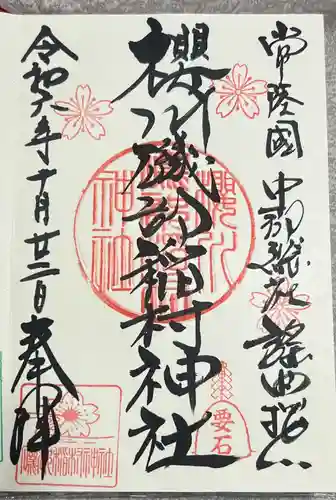 常陸國 中郡総社 謡曲桜川
櫻川磯部稲村神社
令和六年十月廿二日 奉拝
要石